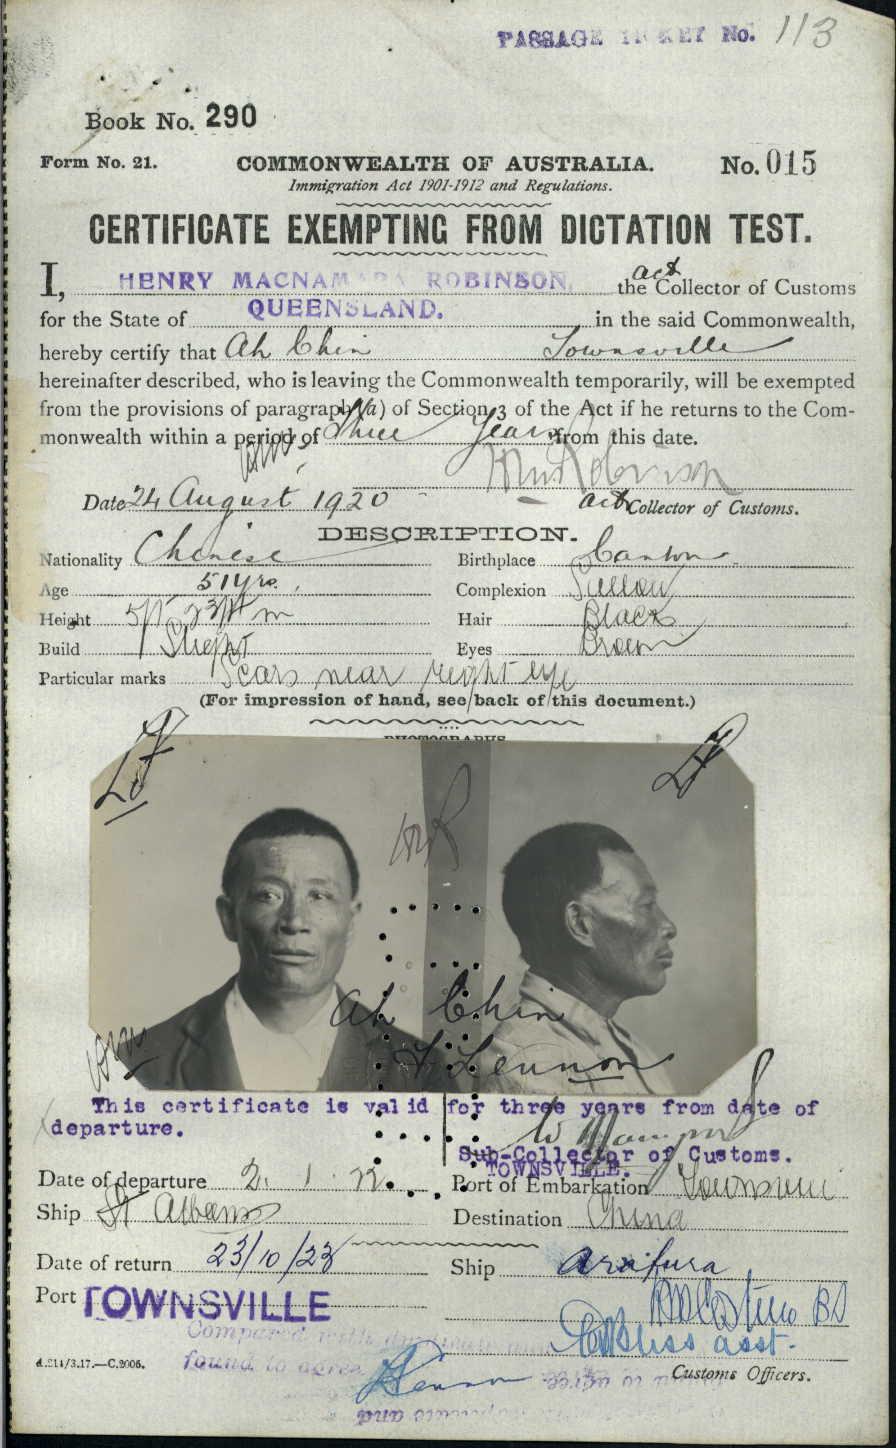 PASSAGE TICKET No. 113
Book No. 290
Form No. 21. COMMONWEALTH OF AUSTRALIA. No. 015
Immigration Act 1901-1912 and Regulations.
CERTIFICATE EXEMPTING FROM DICTATION TEST.
I, HENRY MACNAMARA ROBINSON, the act Collector of Customs
for the State of QUEENSLAND. in the said Commonwealth,
hereby certify that Ah Chin Townsville
hereinafter described, who is leaving the Commonwealth temporarily, will be exempted
from the provisions of paragraph (a) of Section 3 of the Act if he returns to the Com-
monwealth within a period of three years from this date.
Robinson
Date 24 August 1920 act Collector of Customs.
DESCRIPTION.
Nationality Chinese Birthplace Canton
Age 51 yrs. Complexion Sallow
Height 5ft Hair Black
Build Slight Eyes Brown
Particular marks Scars near right eye
(For impression of hand, see back of this document.)
PHOTOGRAPHS
HMR
Ah Chin
Lennon
This certificate is valid for three years from date of
departure.
Sub-Collector of Customs.
TOWNSVILLE.
Date of departure 2. 1. Port of Embarkation Townsville
Ship St Albans Destination China
Date of return 23/10/23 Ship Arafura
Port TOWNSVILLE
asst.
Compared with
found to agree
d.214/3.17.—C.2006. Customs Officers.
Lennon